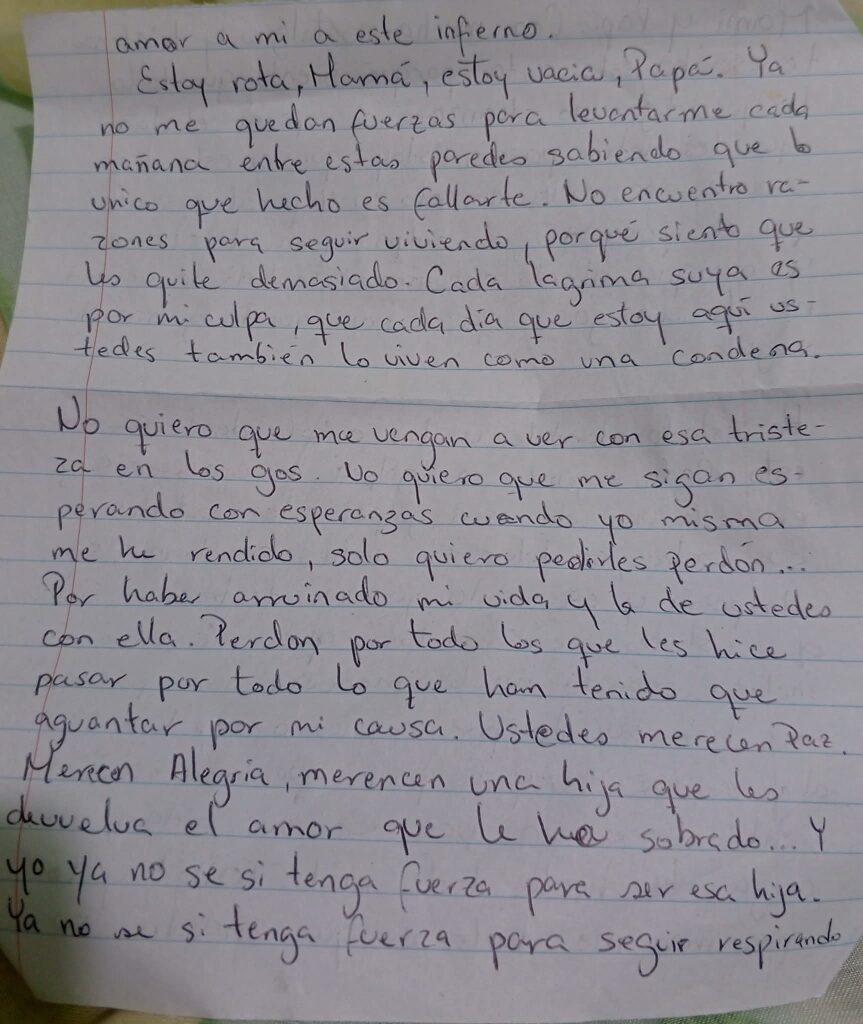 amor a mi a este infierno.
Estoy rota, Mamá, estoy vacia, Papá. Ya
no me quedan fuerzas para levantarme cada
mañana entre estas paredes sabiendo que lo
unico que hecho es fallarte. No encuentro ra-
zones para seguir viviendo, porqué siento que
les quite demasiado. Cada lagrima suya es
por mi culpa, que cada día que estoy aquí us-
tedes también lo viven como una condena.
No quiero que me vengan a ver con esa triste-
za en los ojos. No quiero que me sigan es-
perando con esperanzas cuando yo misma
me he rendido, solo quiero pedirles perdón...
Por haber arruinado mi vida y la de ustedes
con ella. Perdon por todo los que les hice
pasar por todo lo que han tenido que
aguantar por mi causa. Ustedes merecen Paz.
Merecen Alegria, merencen una hija que les
devuelva el amor que le ha sobrado... Y
yo ya no se si tenga fuerza para ser esa hija.
Ya no se si tenga fuerza para seguir respirando